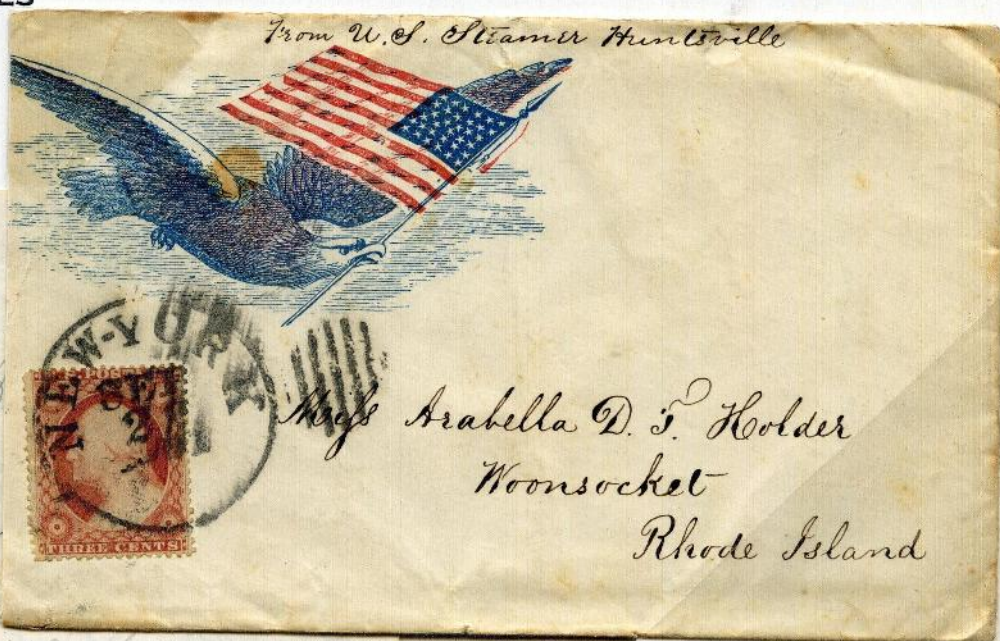 From U.S. Steamer Huntsville
NEW-YORK
THREE CENTS
Miss Arabella D. T. Holder
Woonsocket
Rhode Island